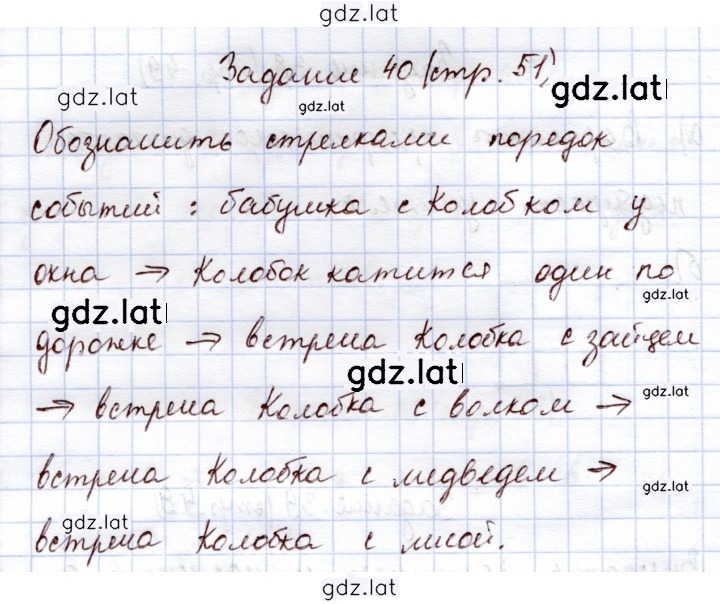 gdz.lat
Задание 40 (стр. 51)
gdz.lat
gdz.lat
Обозначить стрелками порядок
событий : бабушка с Колобком у
окна → Колобок катится один по
gdz.lat
gdz.lat
дорожке → встреча Колобка с зайцем
gdz.lat
gdz.lat
→ встреча Колобка с волком →
встреча Колобка с медведем →
gdz.lat
gdz.lat
встреча Колобка с лисой.
gdz.lat